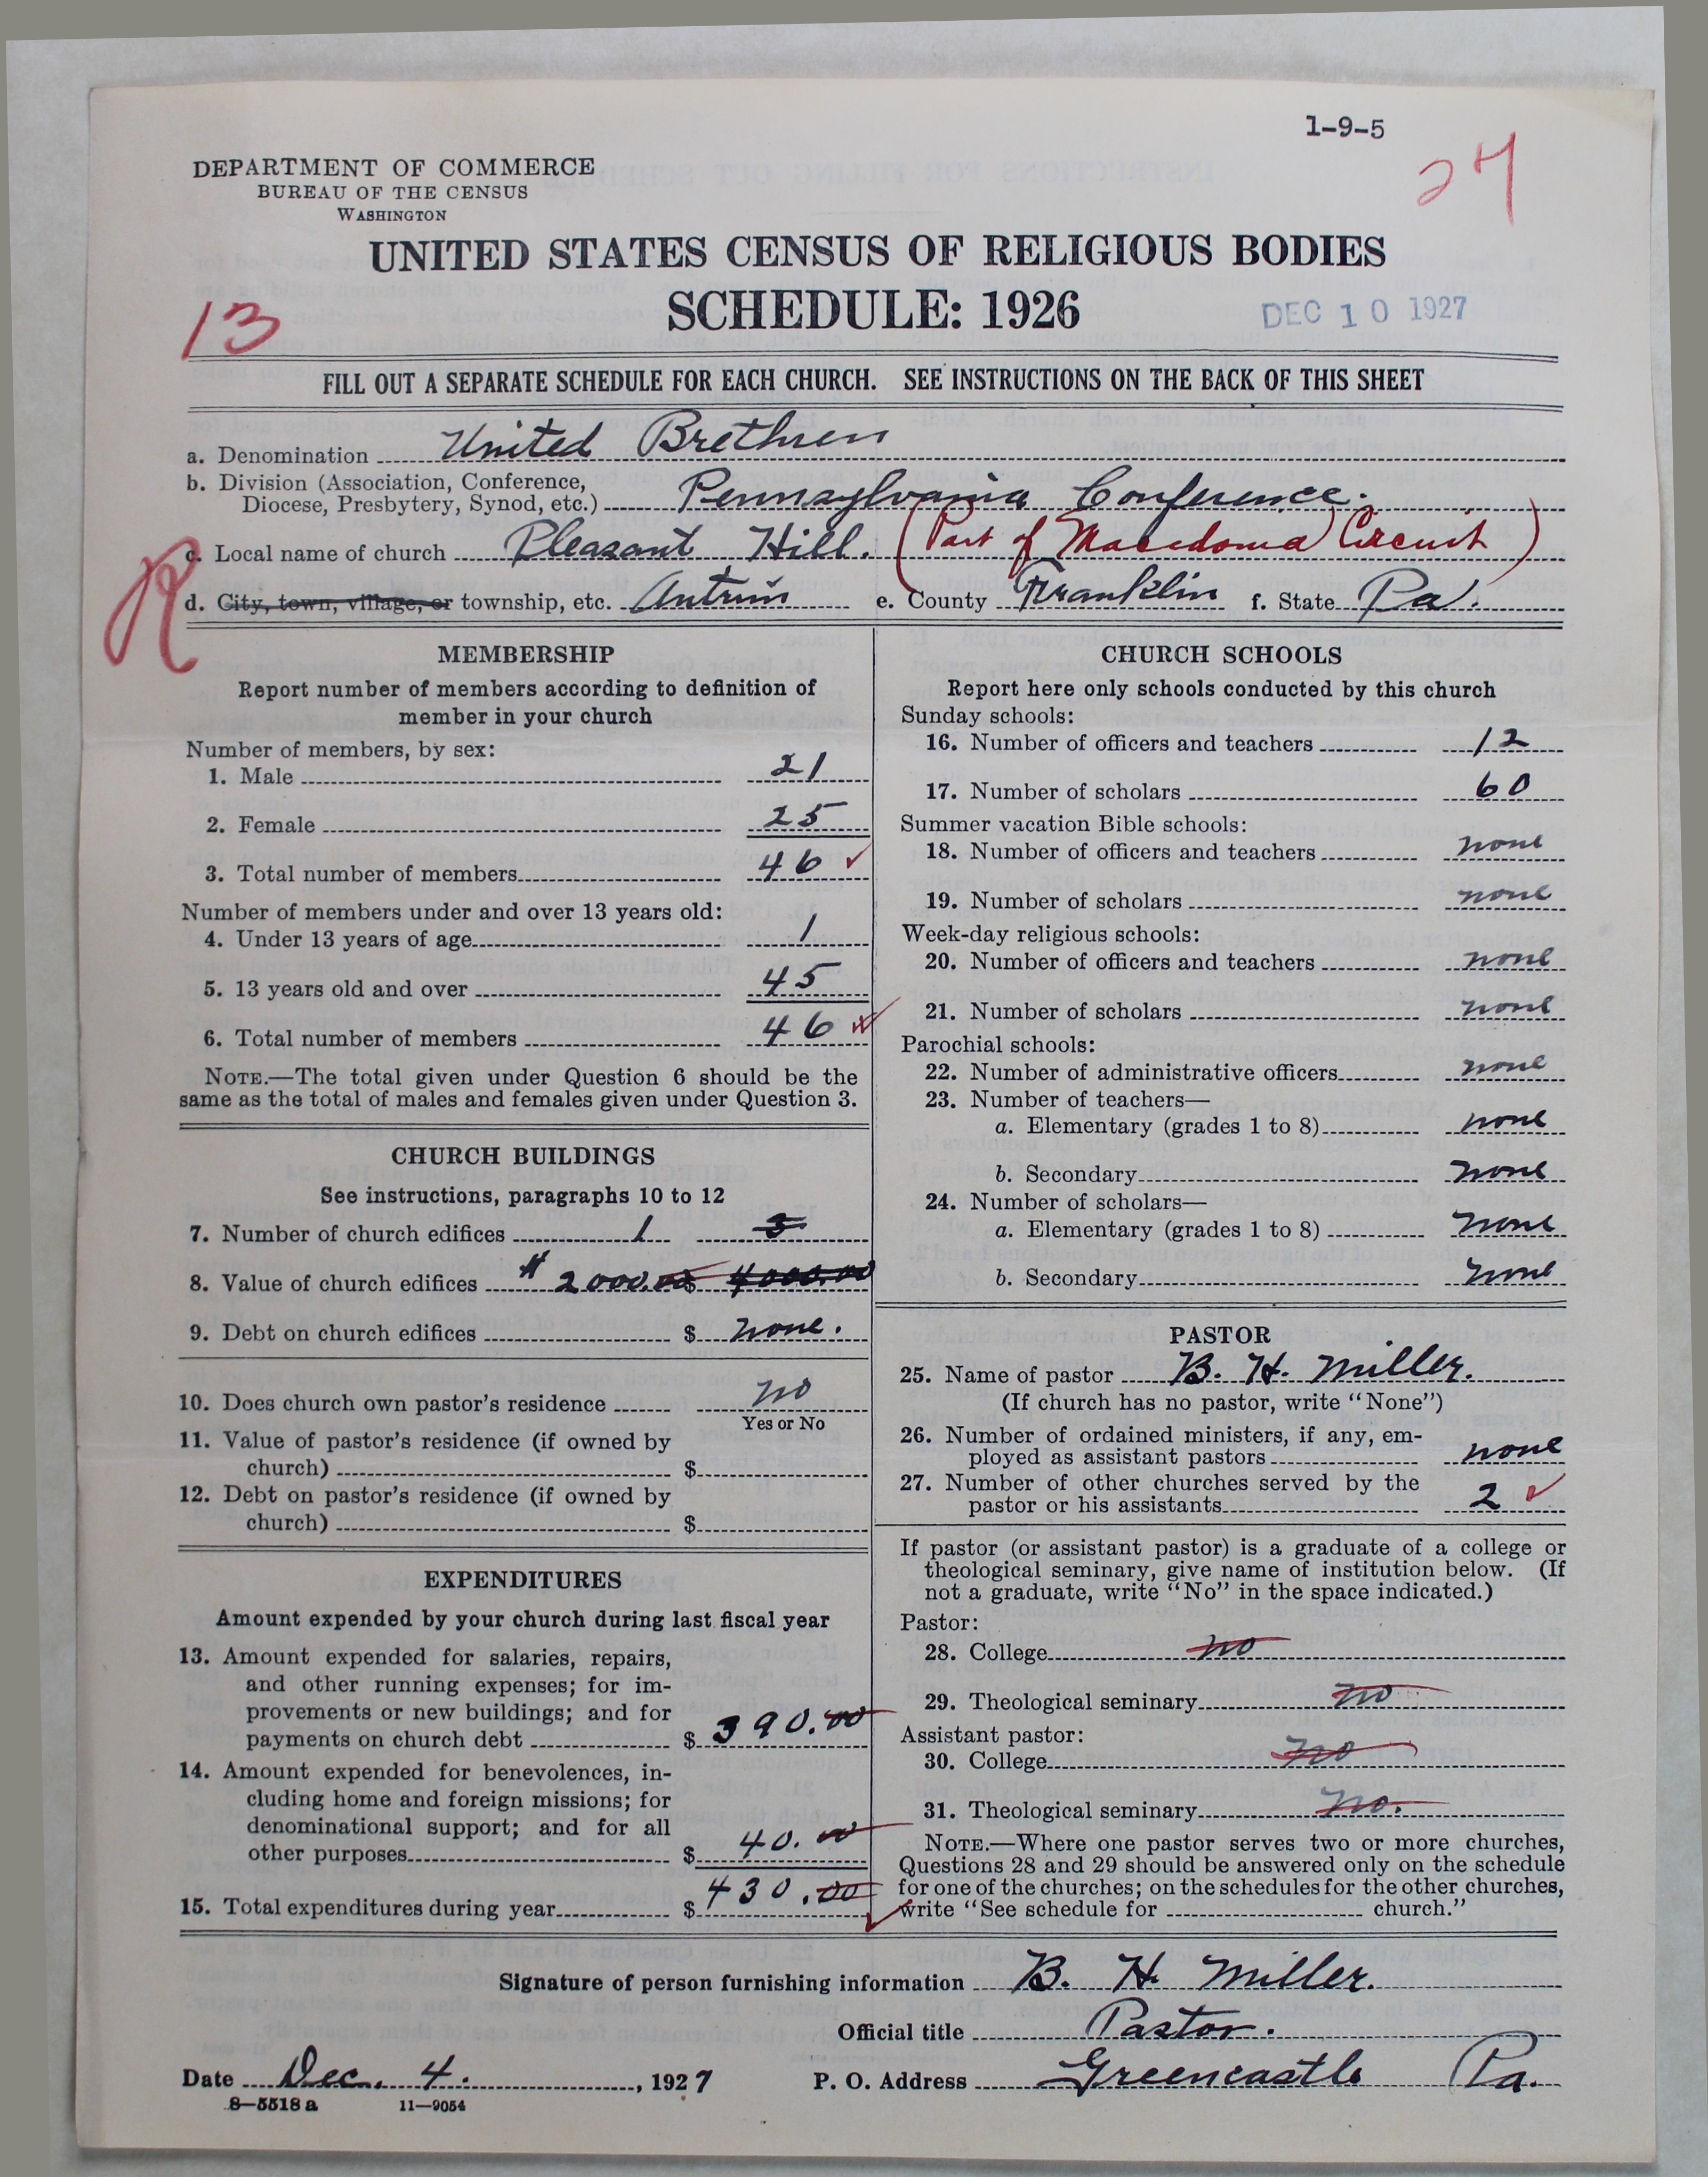 1-9-5
27
DEPARTMENT OF COMMERCE
BUREAU OF THE CENSUS
WASHINGTON
UNITED STATES CENSUS OF RELIGIOUS BODIES
SCHEDULE: 1926
DEC 10 1927
13
FILL OUT A SEPARATE SCHEDULE FOR EACH CHURCH. SEE INSTRUCTIONS ON THE BACK OF THIS SHEET
a. Denomination United Brethren
b. Division (Association, Conference,
Diocese, Presbytery, Synod, etc.) Pennsylvania Conference.
c. Local name of church Pleasant Hill. (Part of Macedonia Circuit)
R
d. City, town, village, or township, etc. Antrim e. County Franklin f. State Pa.
MEMBERSHIP
Report number of members according to definition of
member in your church
Number of members, by sex:
1. Male 21
2. Female 25
3. Total number of members 46
Number of members under and over 13 years old:
4. Under 13 years of age 1
5. 13 years old and over 45
6. Total number of members 46
NOTE.—The total given under Question 6 should be the
same as the total of males and females given under Question 3.
CHURCH BUILDINGS
See instructions, paragraphs 10 to 12
7. Number of church edifices 1 3
8. Value of church edifices $2000.00 $ 4000.00
9. Debt on church edifices $ none.
10. Does church own pastor's residence no
Yes or No
11. Value of pastor's residence (if owned by
church) $
12. Debt on pastor's residence (if owned by
church) $
EXPENDITURES
Amount expended by your church during last fiscal year
13. Amount expended for salaries, repairs,
and other running expenses; for im-
provements or new buildings; and for
payments on church debt $ 390.00
14. Amount expended for benevolences, in-
cluding home and foreign missions; for
denominational support; and for all
other purposes $ 40.00
15. Total expenditures during year $ 430.00
CHURCH SCHOOLS
Report here only schools conducted by this church
Sunday schools:
16. Number of officers and teachers 12
17. Number of scholars 60
Summer vacation Bible schools:
18. Number of officers and teachers none
19. Number of scholars none
Week-day religious schools:
20. Number of officers and teachers none
21. Number of scholars none
Parochial schools:
22. Number of administrative officers none
23. Number of teachers—
a. Elementary (grades 1 to 8) none
b. Secondary none
24. Number of scholars—
a. Elementary (grades 1 to 8) none
b. Secondary none
PASTOR
25. Name of pastor B. H. Miller.
(If church has no pastor, write "None")
26. Number of ordained ministers, if any, em-
ployed as assistant pastors none
27. Number of other churches served by the
pastor or his assistants 2
If pastor (or assistant pastor) is a graduate of a college or
theological seminary, give name of institution below. (If
not a graduate, write "No" in the space indicated.)
Pastor:
28. College no
29. Theological seminary no
Assistant pastor:
30. College no
31. Theological seminary no.
NOTE.—Where one pastor serves two or more churches,
Questions 28 and 29 should be answered only on the schedule
for one of the churches; on the schedules for the other churches,
write "See schedule for church."
Signature of person furnishing information B. H. Miller.
Official title Pastor.
Date Dec. 4. , 1927 P. O. Address Greencastle Pa.
8—5518 a 11—9054